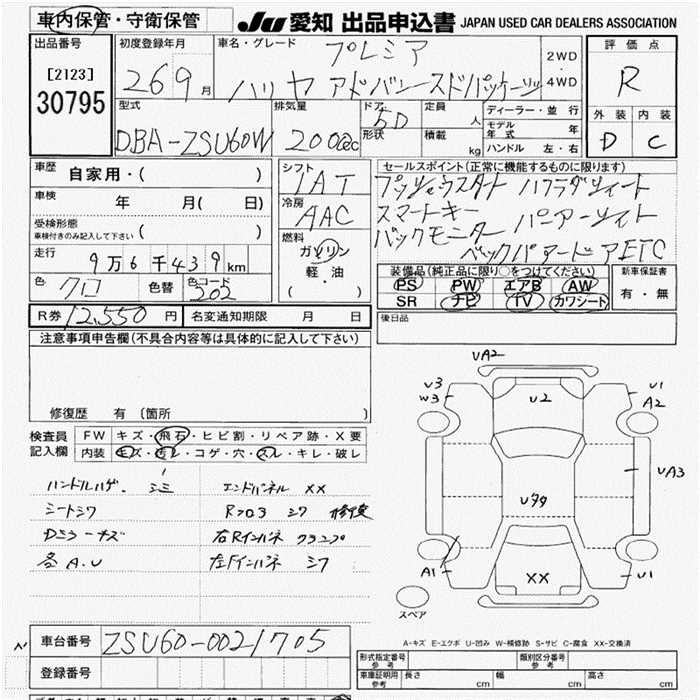 車内保管・守衛保管
JU 愛知 出品申込書 JAPAN USED CAR DEALERS ASSOCIATION
出品番号
[2123]
30795
初度登録年月
26 9 月
車名・グレード
プレミア
ハリヤ アドバンースドパッケージ
2WD
4WD
評価点
R
外装 内装
D C
型式
DBA-ZSU60W
排気量
2000cc
ドア 5D
形状
定員 人
積載 kg
ディーラー・並行
モデル年式 年
ハンドル 左・右
車歴
自家用・( )
車検 年 月( 日)
受検形態
車検付きのみ記入して下さい ( )
走行
9万6千439km
色 クロ
色替
色コード 202
シフト
IAT
冷房
AAC
燃料
ガソリン
軽・油
( ・ )
セールスポイント(正常に機能するものに限ります)
プッシュスタート ハフラダシィート
スマートキー パニアーシィト
バックモニター
ベックパァードア ETC
装備品(純正品に限り○をつけてください)
PS PW エアB AW
SR ナビ TV カワシート
新車保証書
有・無
R券 12,550 円
名変通知期限 月 日
後日品
注意事項申告欄(不具合内容等は具体的に記入して下さい)
修復歴 有 〔箇所 〕
検査員
記入欄
FW キズ・飛石・ヒビ割・リペア跡・X要
内装 キズ・汚レ・コゲ・穴・スレ・キレ・破レ
ハンドルハゲ. シミ エンドパネル XX
シートシワ Rフロア シワ 修復
Dミラーキズ 右Rインパネ クランプ
各A.U 左Fインパネ シワ
UA2
U3
W3
U2
U1
A2
UA3
Uタタ
A1
XX
U1
スペア
A-キズ E-エクボ U-凹み W-補修跡 S-サビ C-腐食 XX-交換済
車台番号 ZSU60-0021705
登録番号
形式指定番号
参考
類別区分番号
参考
車庫証明用
参考
長さ cm
幅 cm
高さ cm